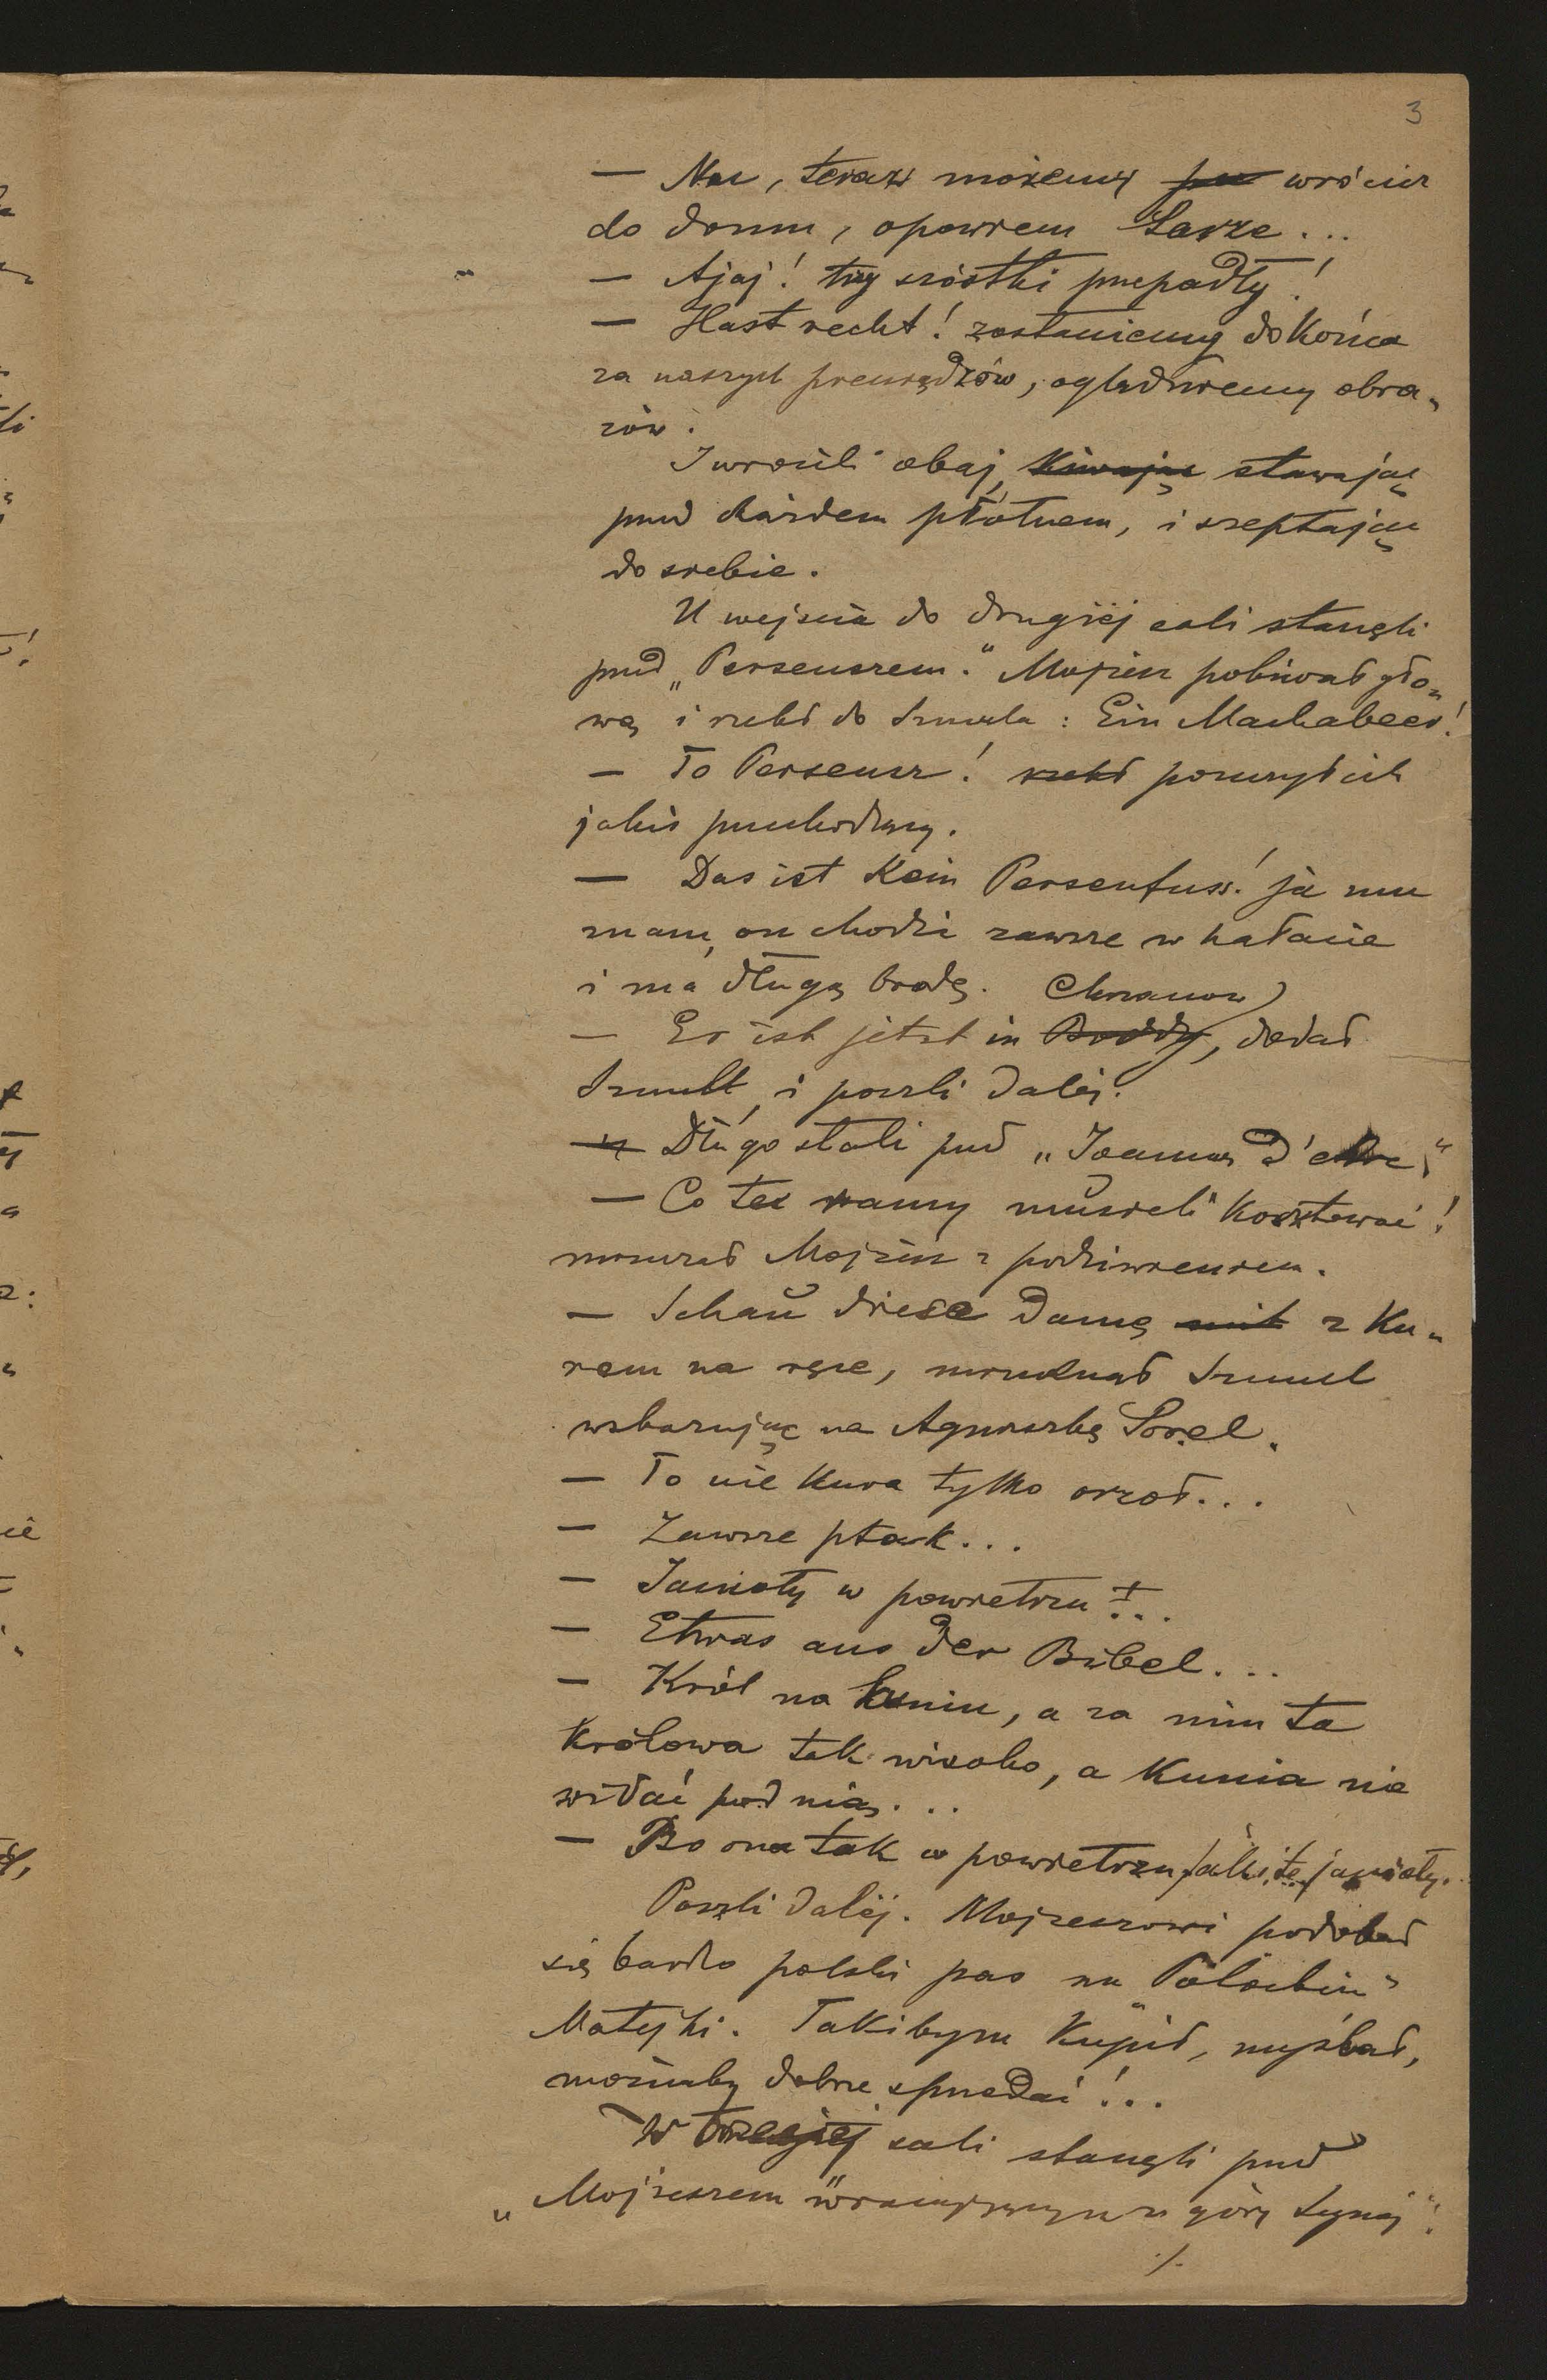 3
— Nu, teraz możemy wrócicz
do domu, opowiem Sarze...
— Ajaj! trzy szóstki przepadły!
— Hast recht! zostaniemy do końca
za naszych pieniędzów, oglądniemy obra-
zów.
I wrócili obaj, kiwając stawając
pred każdem płótnem, i szeptając
do siebie.
U wejścia do drugiéj sali stanęli
pred „Perseuszem." Mojżesz pokiwał gło-
wą i rzekł do Szmula: Ein Machabeer!
— To Perseusz! rzekł poruszył ich
jakiś przechodzący.
— Das ist kein Persentuss! ja mu
znam, on chodzi zawsze w hałacie
i ma długą brodę. Chrzanow
— Er ist jetzt in Brody, dodał
Szmul, i poszli daléj.
Długo stali pred „Joanną d'Arc"
— Co też ramy musieli kosztować!
mruczał Mojżesz z podziwieniem.
— Schau diese damę mit z ku-
rem na ręce, mruknął Szmul
wskazując na Agnieszkę Sorel.
— To nie kura tylko orzoł...
— Zawsze ptak...
— Janioły w powietrzu!...
— Etwas aus der Bibel...
— Król na kuniu, a za nim ta
królowa tak wisoko, a kunia nie
widać pod nią...
— Bo ona tak w powietrzu, jak i te janioły.
Poszli daléj. Mojżeszowi podobał
się bardzo polski pas na
Matejki. Takibym kupił, myślał,
możnaby dobrze spredać!..
W trzeciej sali stanęli pred
„Mojżeszem wracającym z góry Synaj".
./.